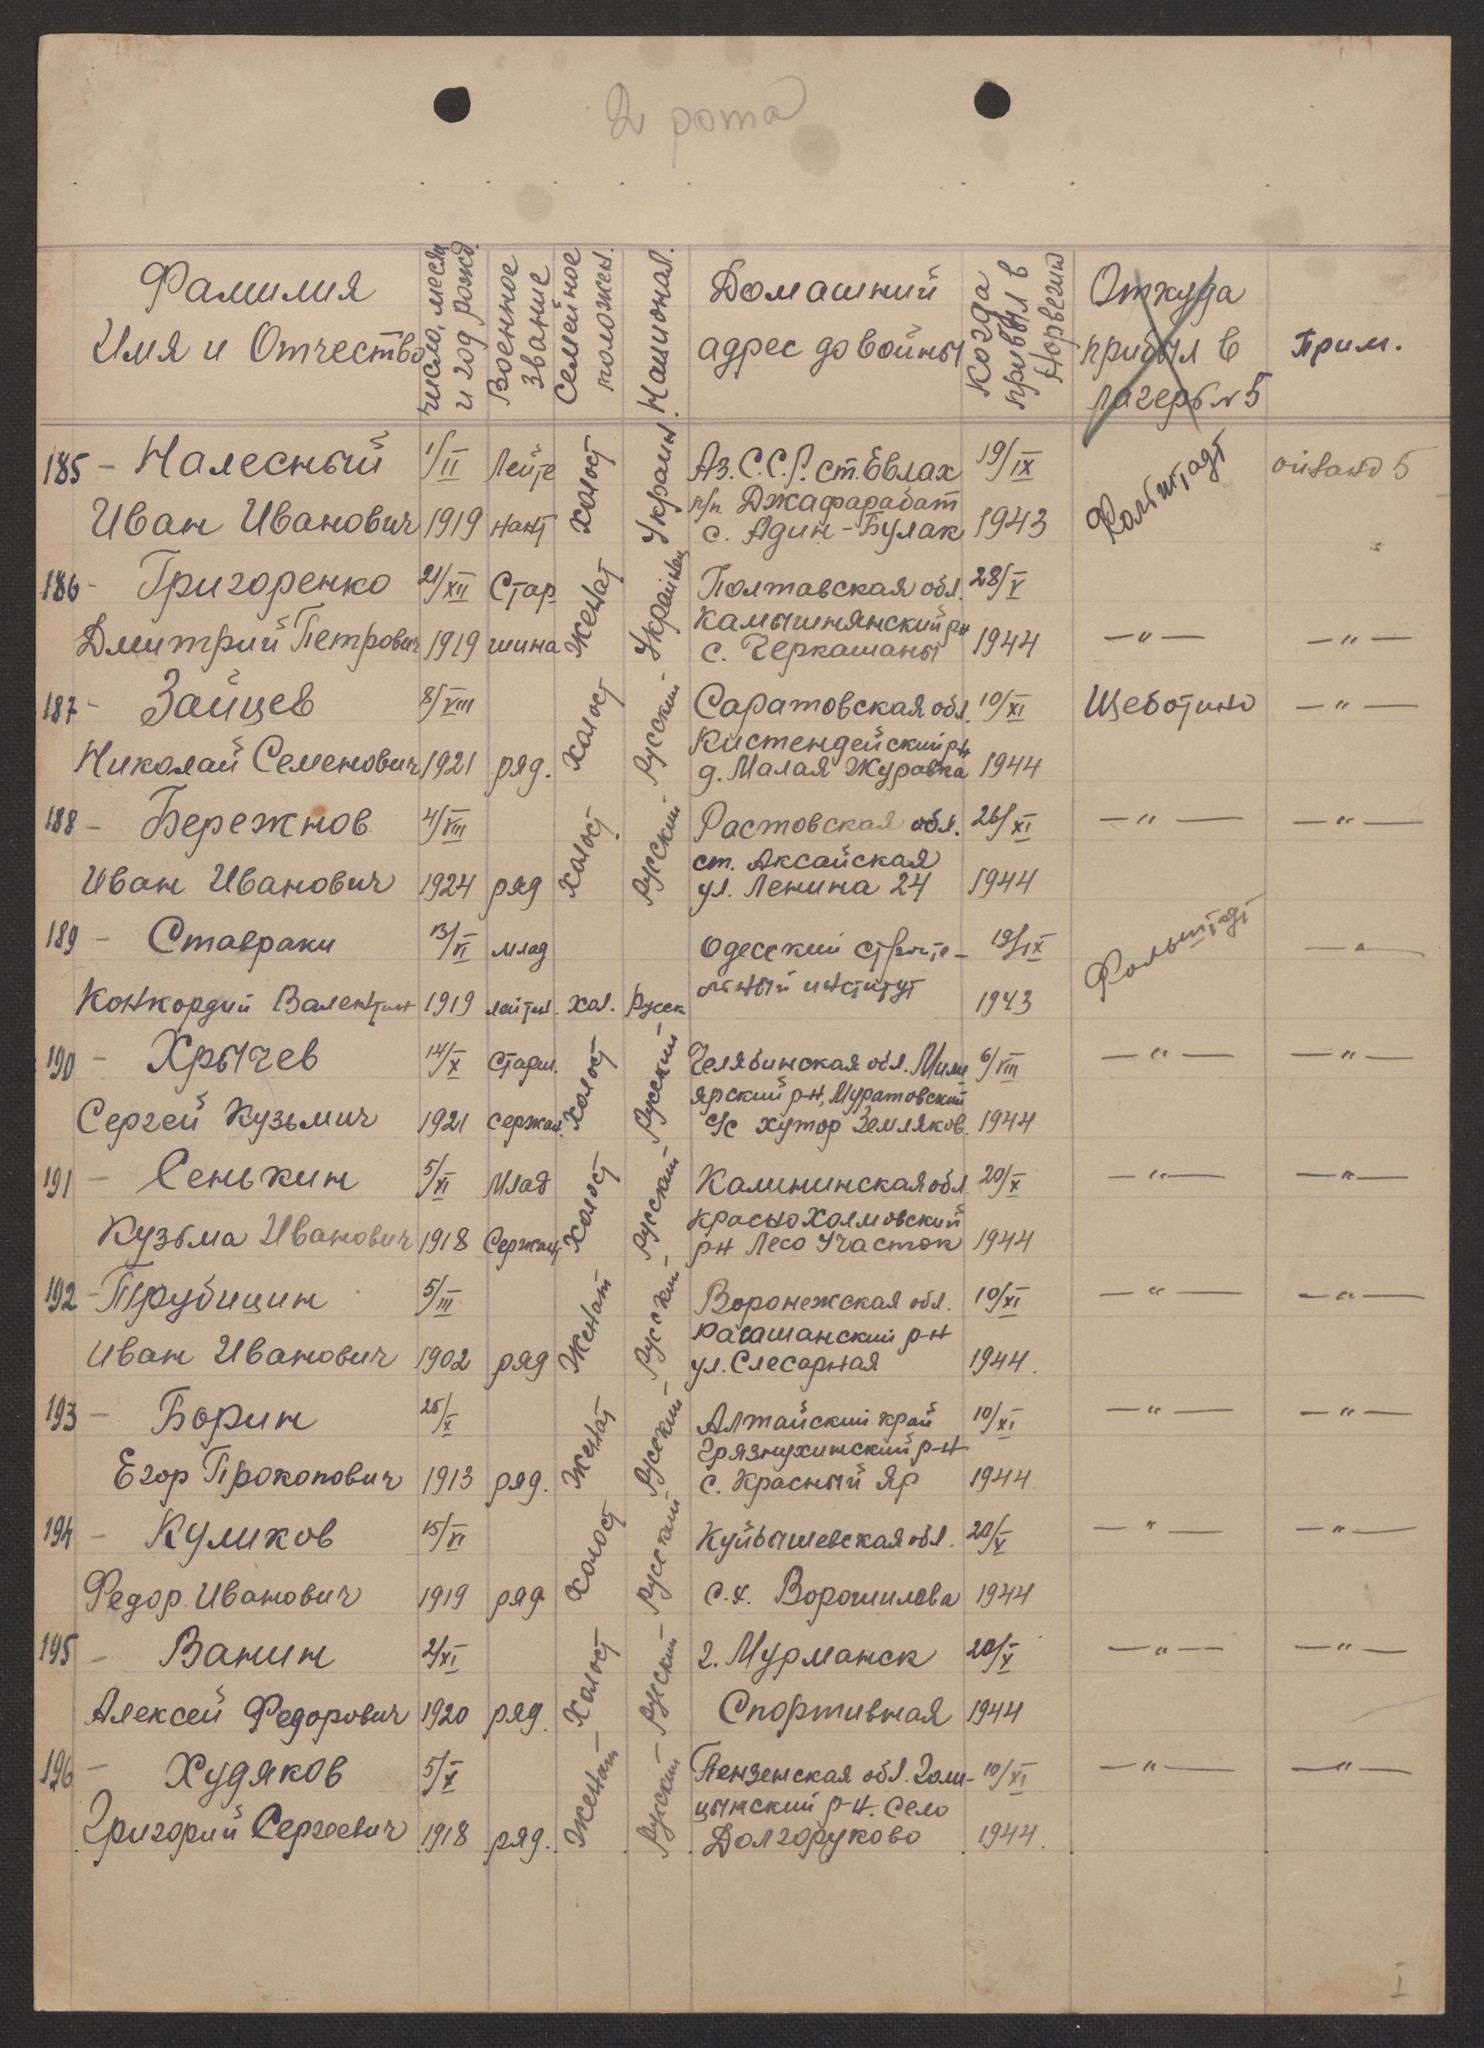 2 рота
Фамилия
Имя и Отчество
число, месяц
и год рожд.
Военное
звание
Семейное
положен.
Национал.
Домашний
адрес до войны
Когда
прибыл в
Норвегию
Откуда
прибыл в
лагерь № 5
Прим.
185 - Налесный 1/II Лейте холост Украин. Аз. С.С.Р. ст. Евлах 19/IX Фальштадт 5
Иван Иванович 1919 нант п/п Джафарабат 1943
с. Адин-Булак
186 - Григоренко 21/XII Стар женат Украинец Полтавская обл. 28/V
Дмитрий Петрович 1919 шина Камышнянский рн 1944 — " — — " —
с. Черкашаны
187 - Зайцев 8/VIII холост Русский Саратовская обл. 10/XI Щеботино — " —
Николай Семенович 1921 ряд. Кистендейский рн 1944
д. Малая Журавка
188 - Бережнов 4/VIII холост Русский Растовская обл. 26/XI — " — — " —
Иван Иванович 1924 ряд ст. Аксайская 1944
ул. Ленина 24
189 - Ставраки 13/VI млад Одесский строите- 19/IX Фальштадт — " —
Конкордий Валентин 1919 лейтен. хол. Русск льный институт 1943
190 - Хрычев 14/X Старш. холост Русский Челябинская обл. 6/VIII — " — — " —
Сергей Кузьмич 1921 сержан. ярский р-н, Муратовский 1944
с/с хутор Земляков.
191 - Сенькин 5/XI Млад холост Русский Калининская обл 20/X — " — — " —
Кузьма Иванович 1918 Сержант Краснохолмовский 1944
рн Лесо Участок
192 - Трубицин 5/III женат Русский Воронежская обл. 10/XI — " — — " —
Иван Иванович 1902 ряд р-н 1944.
ул. Слесарная
193 - Борин 25/X женат Русский Алтайский край 10/XI — " — — " —
Егор Прокопович 1913 ряд. Грязнухинский р-н 1944
с. Красный Яр
194 - Куликов 15/XI холост Русский Куйбышевская обл. 20/X — " — — " —
Федор Иванович 1919 ряд. с.х. Ворошилова 1944
195 - Ванин 2/XI холост Русский г. Мурманск 20/X — " — — " —
Алексей Федорович 1920 ряд. Спортивная 1944
196 - Худяков 5/X женат Русский Пензенская обл. Голи- 10/XI — " — — " —
Григорий Сергеевич 1918 ряд. цынский р-н. село 1944.
Долгоруково
I